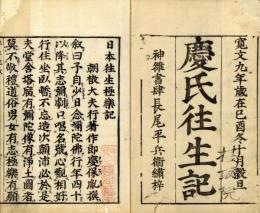 寛文九年歳在己酉冬十一月穀日
慶氏往生記
神雒書肆長尾平兵衞繡梓
日本往生極樂記
朝散大夫行著作郎慶保胤撰
叙曰予自少日念彌陀佛行年四十
以降其志彌劇口唱名號心觀相好
行住坐臥暫不忘造次顛沛必於是
夫堂舍塔廟有彌陀像有淨土圖者
莫不敬禮道俗男女有志極樂有願